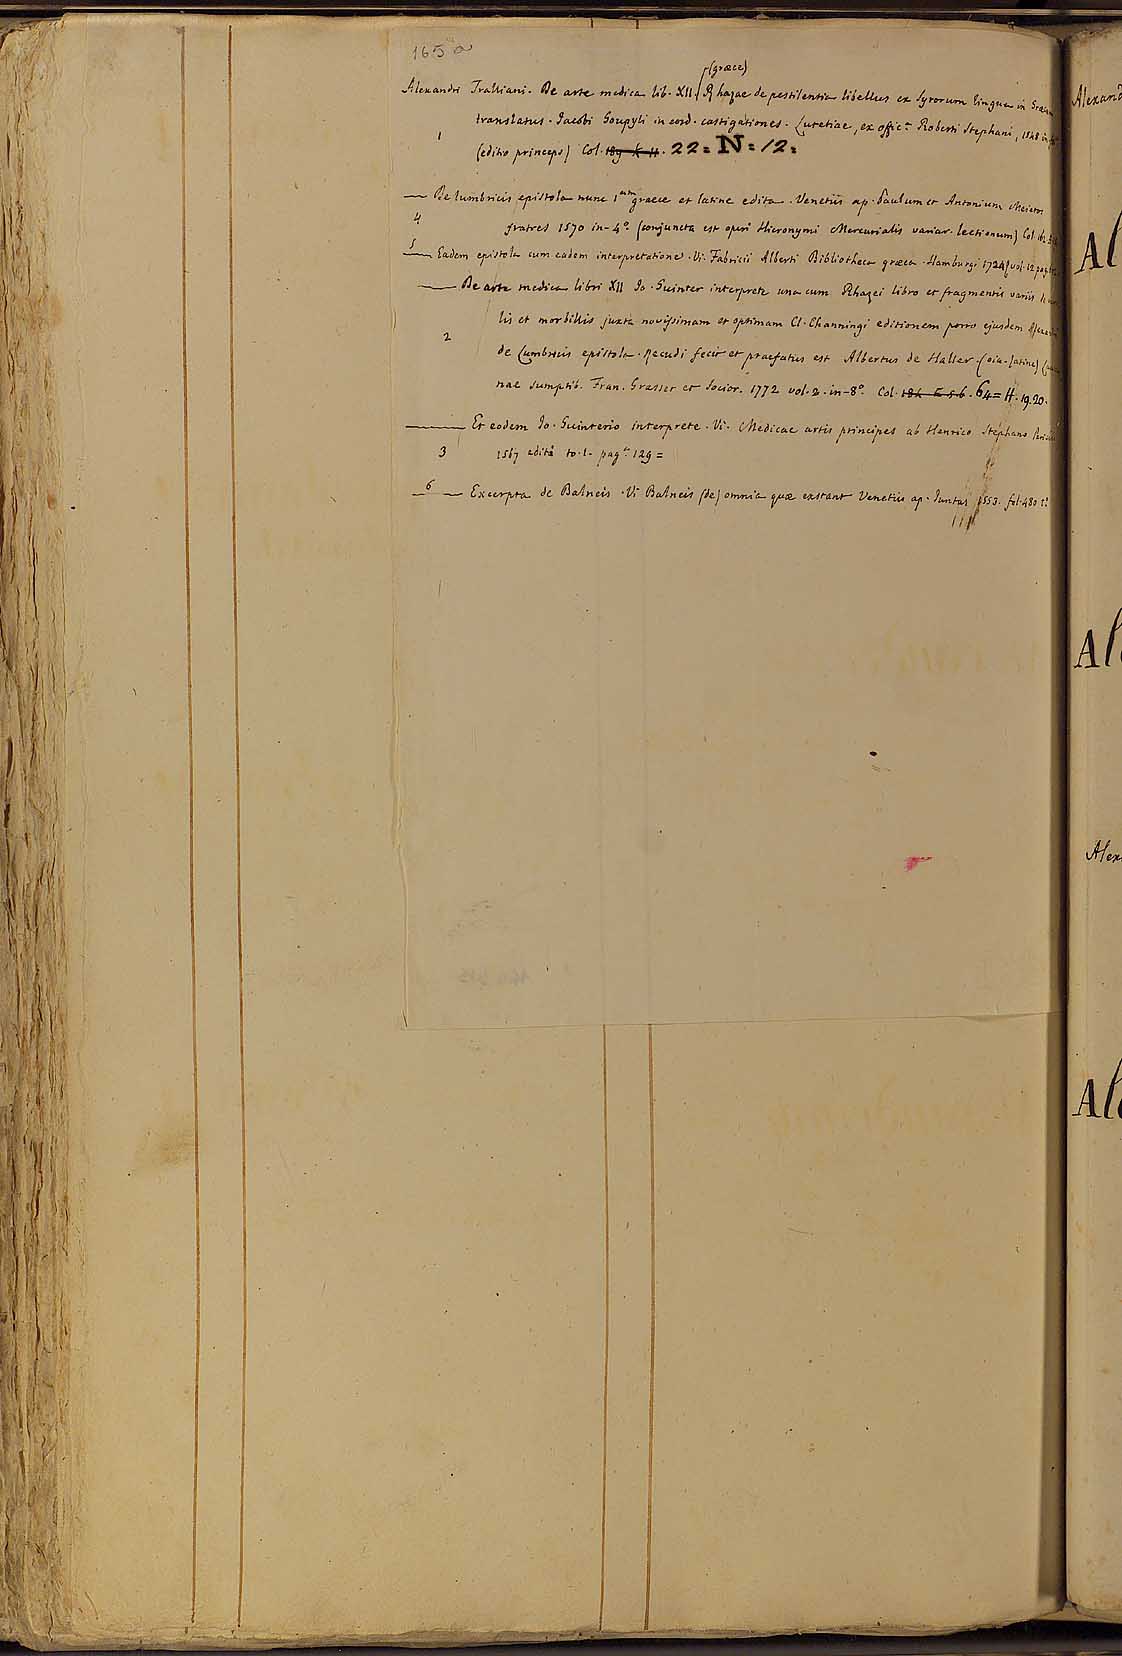 165 a
(græce)
Alexandri Tralliani. De arte medica lib. XII. Rhazae de pestilentia libellus ex Syrorum lingua in
translatus. Jacobi Goupyli in eord. castigationes. Lutetiae, ex offic.ª Roberti Stephani, 1548
1
(editio princeps) Col. 22=N=12=
De lumbricis epistola nunc 1um graece et latine edita. Venetiis ap. Paulum et Antonium Meietos
4
fratres 1570 in-4º (conjuncta est operi Hieronymi Mercurialis variar. lectionum) Col.
5
Eadem epistola cum eadem interpretatione. Vi. Fabricii Alberti Bibliotheca græca. Hamburgi 1724 vol. 12 pag.
De arte medica libri XII Jo. Guinter interprete una cum Rhazei libro et fragmentis variis
lis et morbillis juxta novissimam et optimam Cl. Channingi editionem porro ejusdem
2
de Lumbricis epistola. Recudi fecit et praefatus est Albertus de Haller. (oia. latine)
nae sumptib. Fran. Grasset et Socior. 1772 vol. 2. in-8º Col. 64=H.19.20.
Et eodem Jo. Guinterio interprete. Vi. Medicae artis principes ab Henrico Stephano
3
1567 editi to. 1. pag. 129=
6
Excerpta de Balneis. Vi Balneis (de) omnia quæ extant Venetiis ap. Juntas 1553. fol. 480
Al
Al
Al